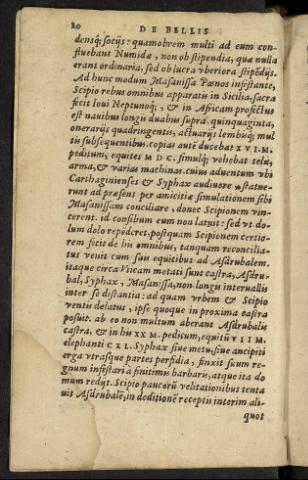 20 DE BELLIS
densq́; socijs: quamobrem multi ad eum con-
fluebant Numidæ, non ob stipendia, quæ nulla
erant ordinaria, sed ob lucra vberiora stipẽdijs.
Ad hunc modum Masanissa Pœnos infestante,
Scipio rebus omnibus apparatis in Sicilia, sacra
fecit Ioui Neptunoq́;, & in Africam profectus
est nauibus longis duabus supra quinquaginta,
onerarijs quadringentis, actuarijs lembisq́; mul
tis subsequentibus. copias autẽ ducebat XVI. M.
peditum, equites M D C. simulq́; vehebat tela,
arma, & varias machinas. cuius aduentum vbi
Carthaginienses & Syphax audiuere, statue-
runt ad præsens per amicitiæ simulationem sibi
Masanissam conciliare, donec Scipionem vin-
cerent. id consilium eum non latuit: sed vt do-
lum dolo repẽderet. postquam Scipionem certio-
rem fecit de his omnibus, tanquam reconcilia-
tus venit cum suis equitibus ad Asdrubalem.
itaque circa Vticam metati sunt castra, Asdru-
bal, Syphax, Masanissa, non longis interuallis
inter se distantia: ad quam vrbem & Scipio
ventis delatus, ipse quoque in proxima castra
posuit. ab eo non multum aberant Asdrubalis
castra, & in his XX M. peditum, equitũ VII M
elephanti CXL. Syphax siue metu, siue ancipiti
erga vtrasque partes perfidia, finxit suum re-
gnum infestari à finitimis barbaris, atque ita do
mum redijt. Scipio paucorũ velitationibus tenta
uit Asdrubalẽ, in deditionẽ receptis interim ali-
quot